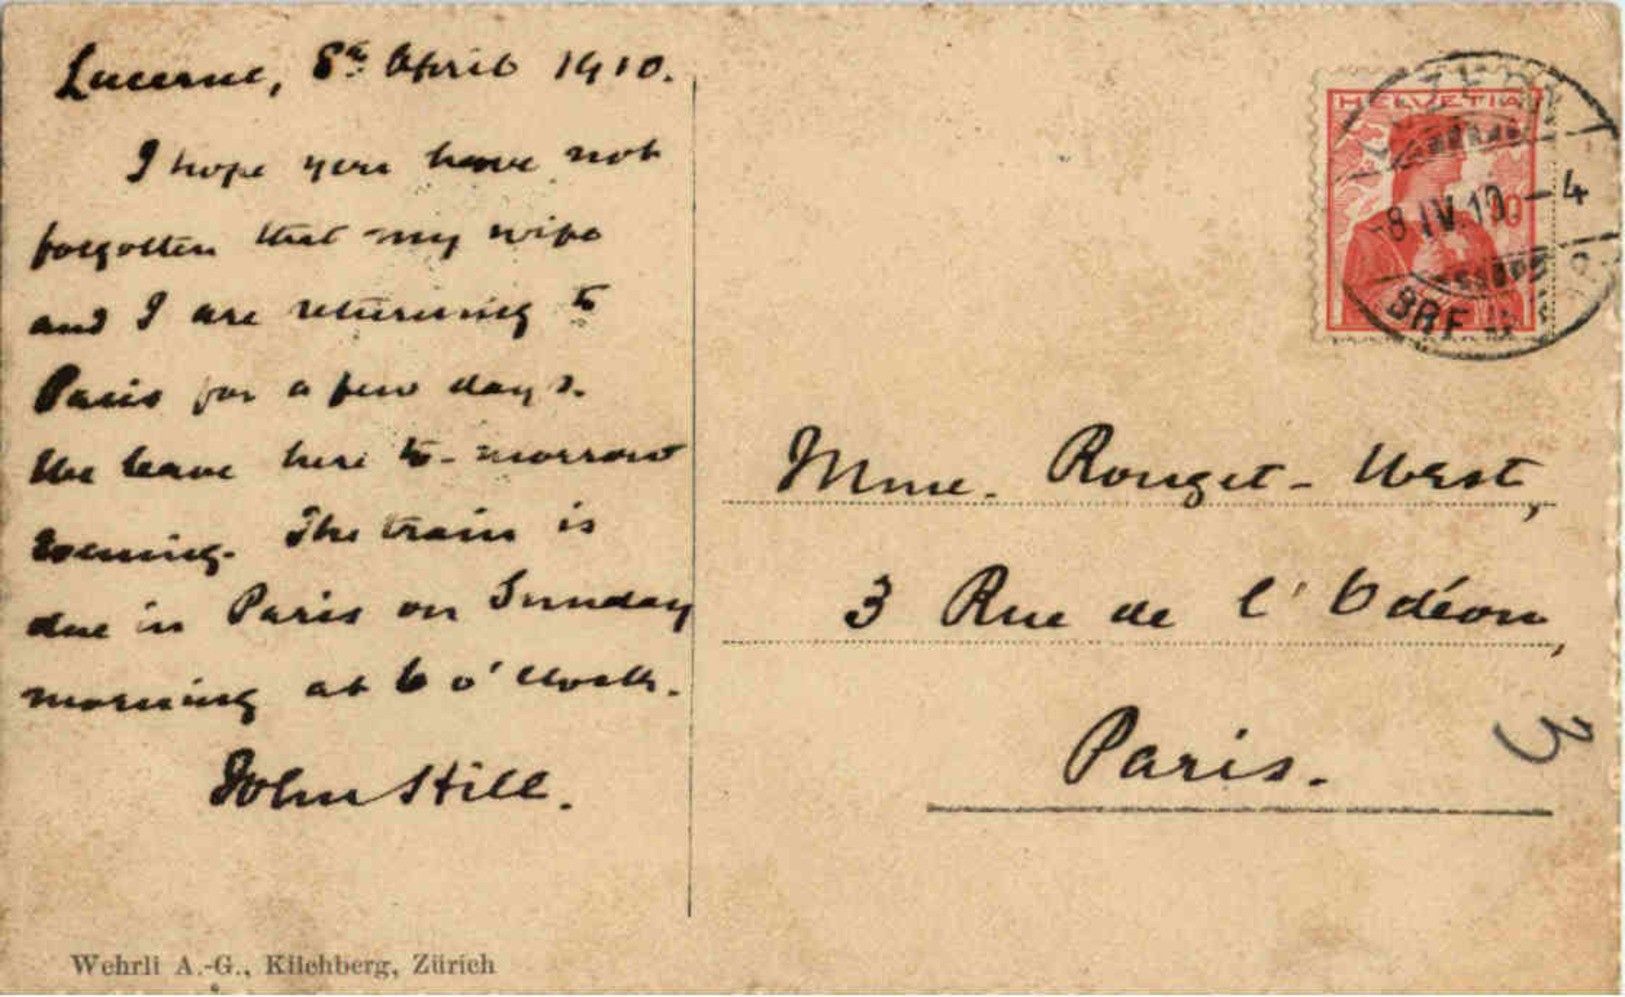 Lucerne, 8th April 1910.
I hope you have not
forgotten that my wife
and I are returning to
Paris for a few days.
We leave here to-morrow
evening. The train is
due in Paris on Sunday
morning at 6 o'clock.
John Hill.
HELVETIA
8.IV.10-4
Mme. Rouget-West,
3 Rue de l'Odéon,
Paris.
3
Wehrli A.-G., Kilchberg, Zürich